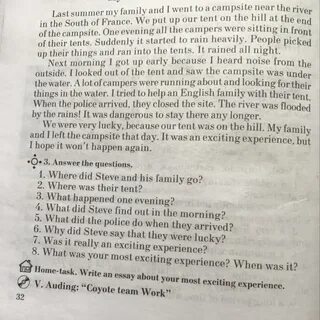 Last summer my family and I went to a campsite near the river
in the South of France. We put up our tent on the hill at the end
of the campsite. One evening all the campers were sitting in front
of their tents. Suddenly it started to rain heavily. People picked
up their things and ran into the tents. It rained all night.
Next morning I got up early because I heard noise from the
outside. I looked out of the tent and saw the campsite was under
the water. A lot of campers were running about and looking for their
things in the water. I tried to help an English family with their tent.
When the police arrived, they closed the site. The river was flooded
by the rains! It was dangerous to stay there any longer.
We were very lucky, because our tent was on the hill. My family
and I left the campsite that day. It was an exciting experience, but
I hope it won't happen again.
3. Answer the questions.
1. Where did Steve and his family go?
2. Where was their tent?
3. What happened one evening?
4. What did Steve find out in the morning?
5. What did the police do when they arrived?
6. Why did Steve say that they were lucky?
7. Was it really an exciting experience?
8. What was your most exciting experience? When was it?
Home-task. Write an essay about your most exciting experience.
V. Auding: "Coyote team Work"
32